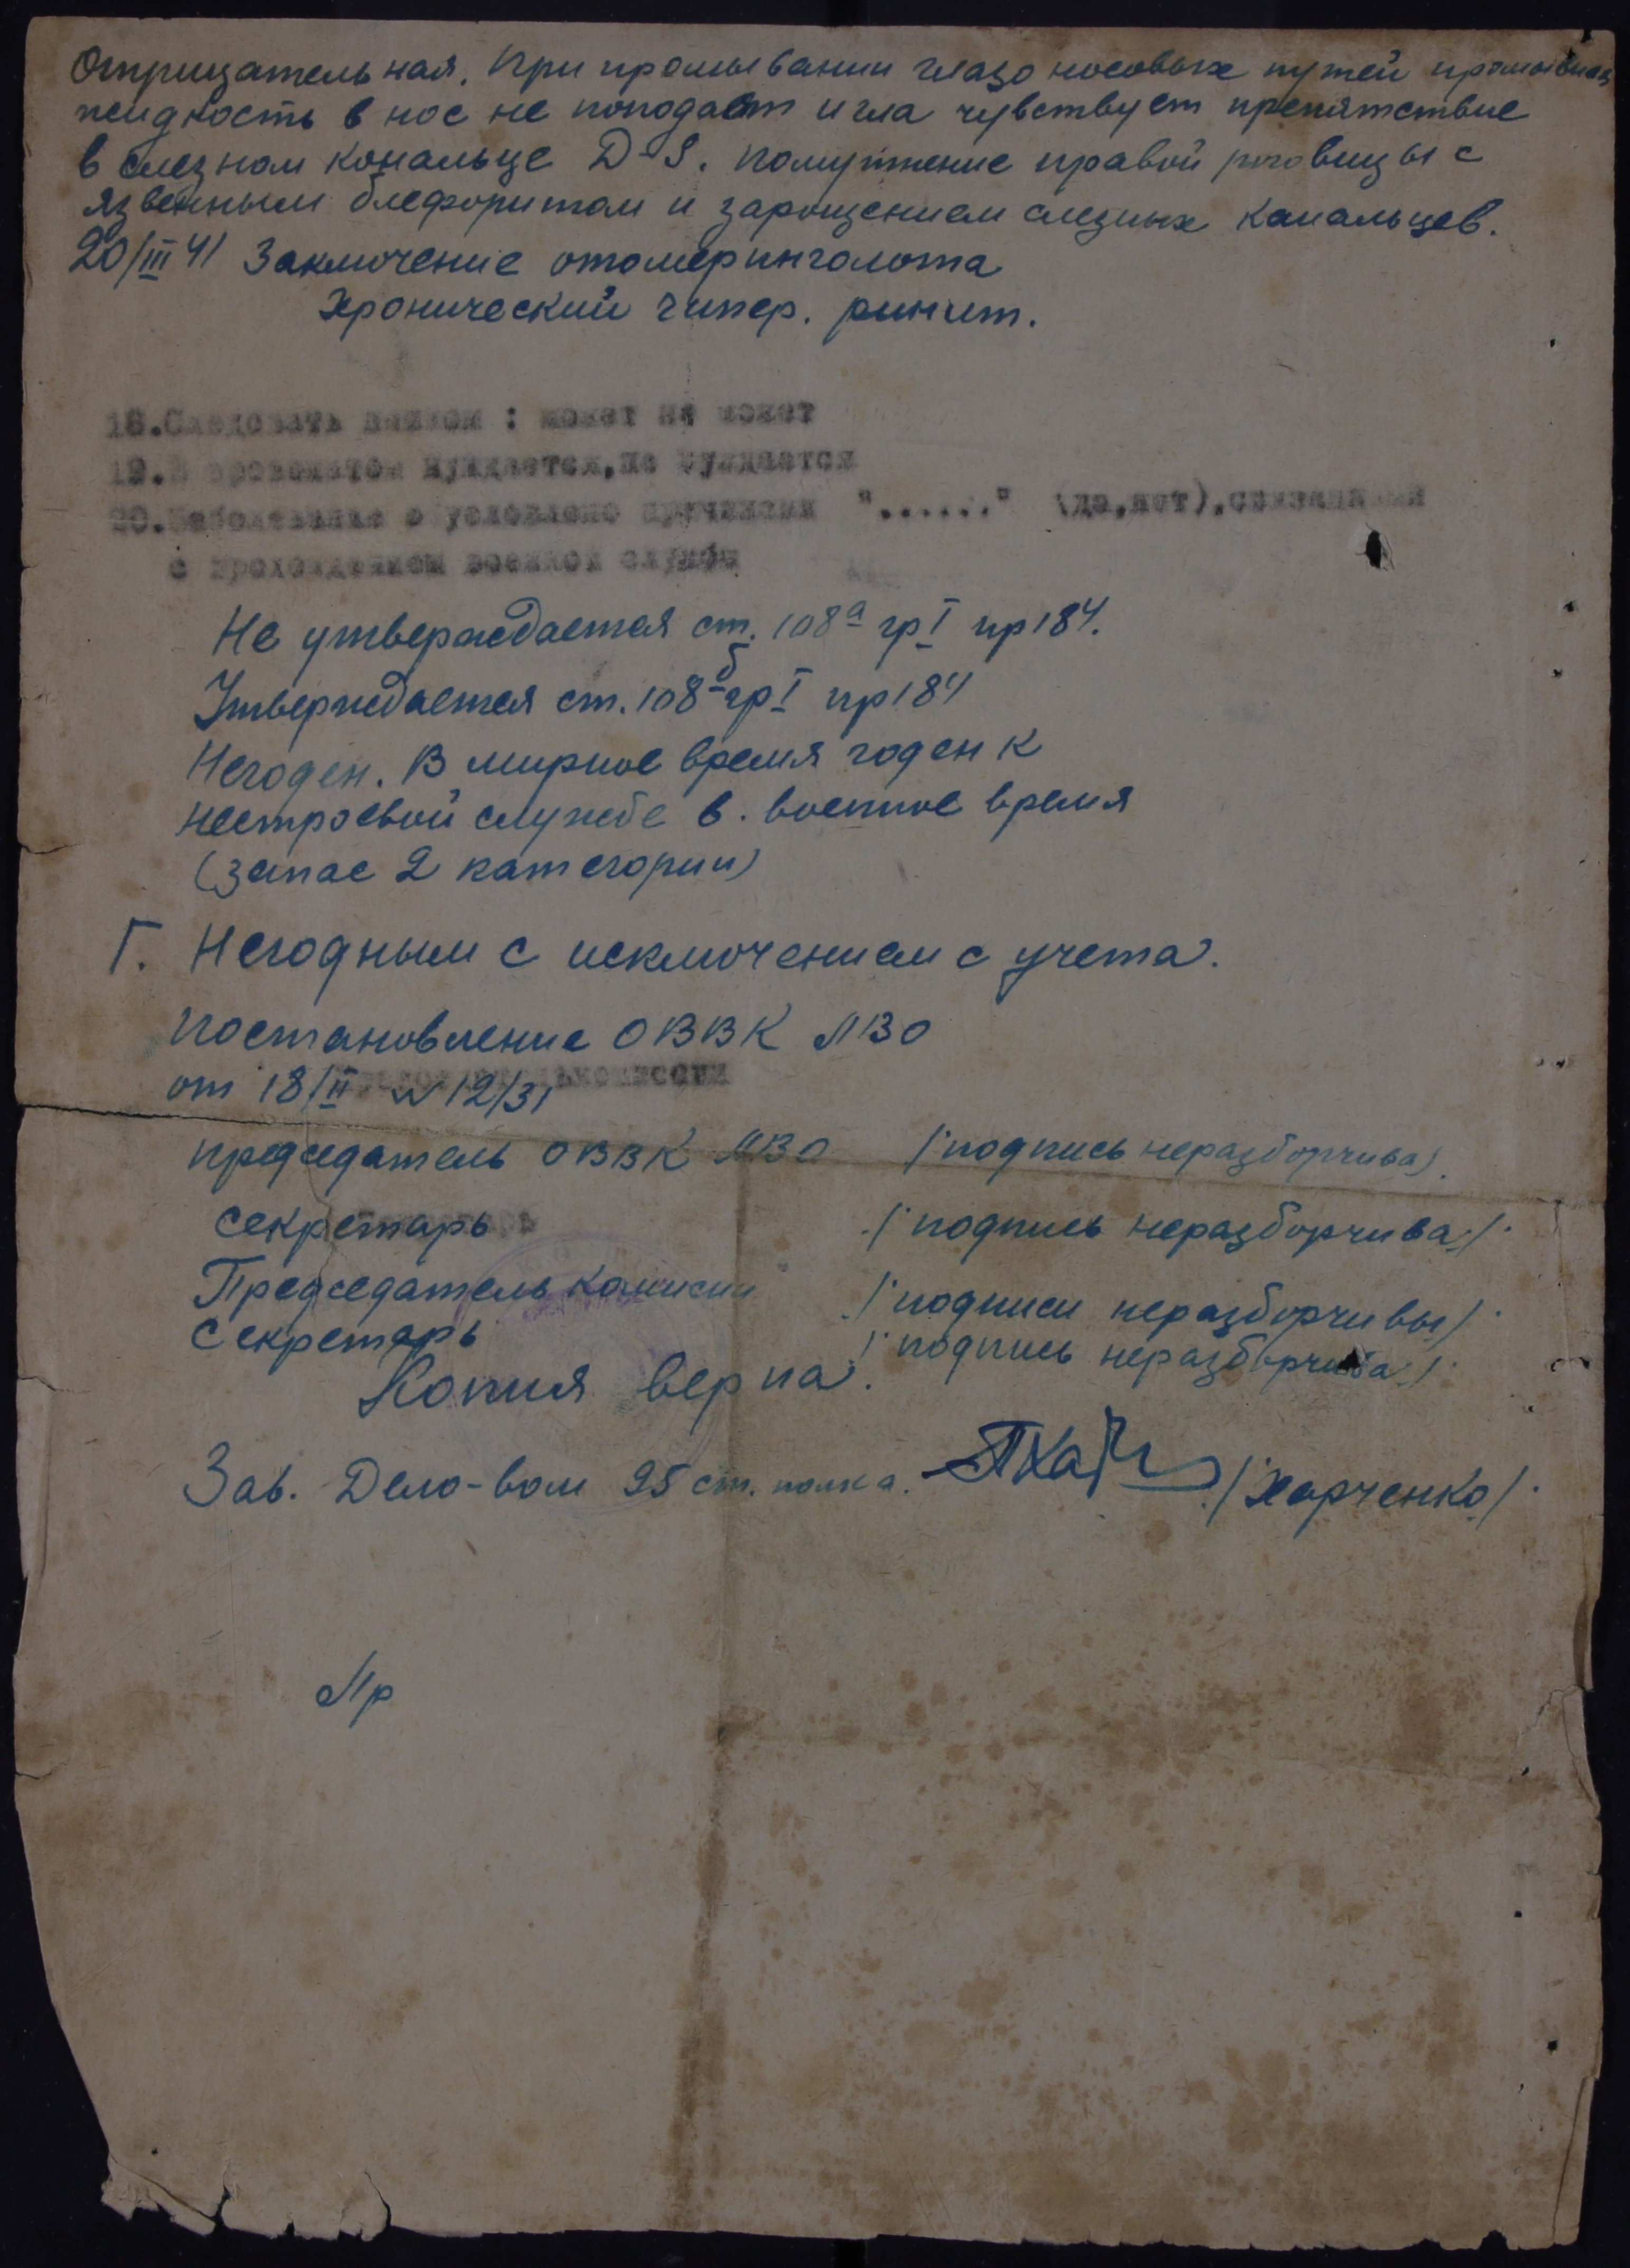 Отрицательная. При промывании глазо носовых путей промывная
жидкость в нос не поподает игла чувствует препятствие
в слезном кональце D-S. помутнение правой роговицы с
язвенным блефоритом и зарощением слезных канальцев.
20/III 41 Заключение отолеринголога
Хронический гипер. ринит.
18.Следовать пешком : может не может
19.В провожатом нуждается,не нуждается
20.Заболевание обусловлено причинами "......" (да,нет),связанными
с прохождением военной службы
Не утверждается ст. 108 а гр I пр 184.
Утверждается ст. 108 б гр I пр 184
Негоден. В мирное время годен к
нестроевой службе в. военное время
(запас 2 категории)
Г. Негодным с исключением с учета.
постановление ОВВК ЛВО
от 18/II № 12/31
председатель ОВВК ЛВО /подпись неразборчива/.
секретарь /подпись неразборчива/.
Председатель комисии /подписи неразборчивы/.
Секретарь /подпись неразборчива/.
Копия верна.
Зав. Дело-вом 25 ст. полка. /Харченко/.